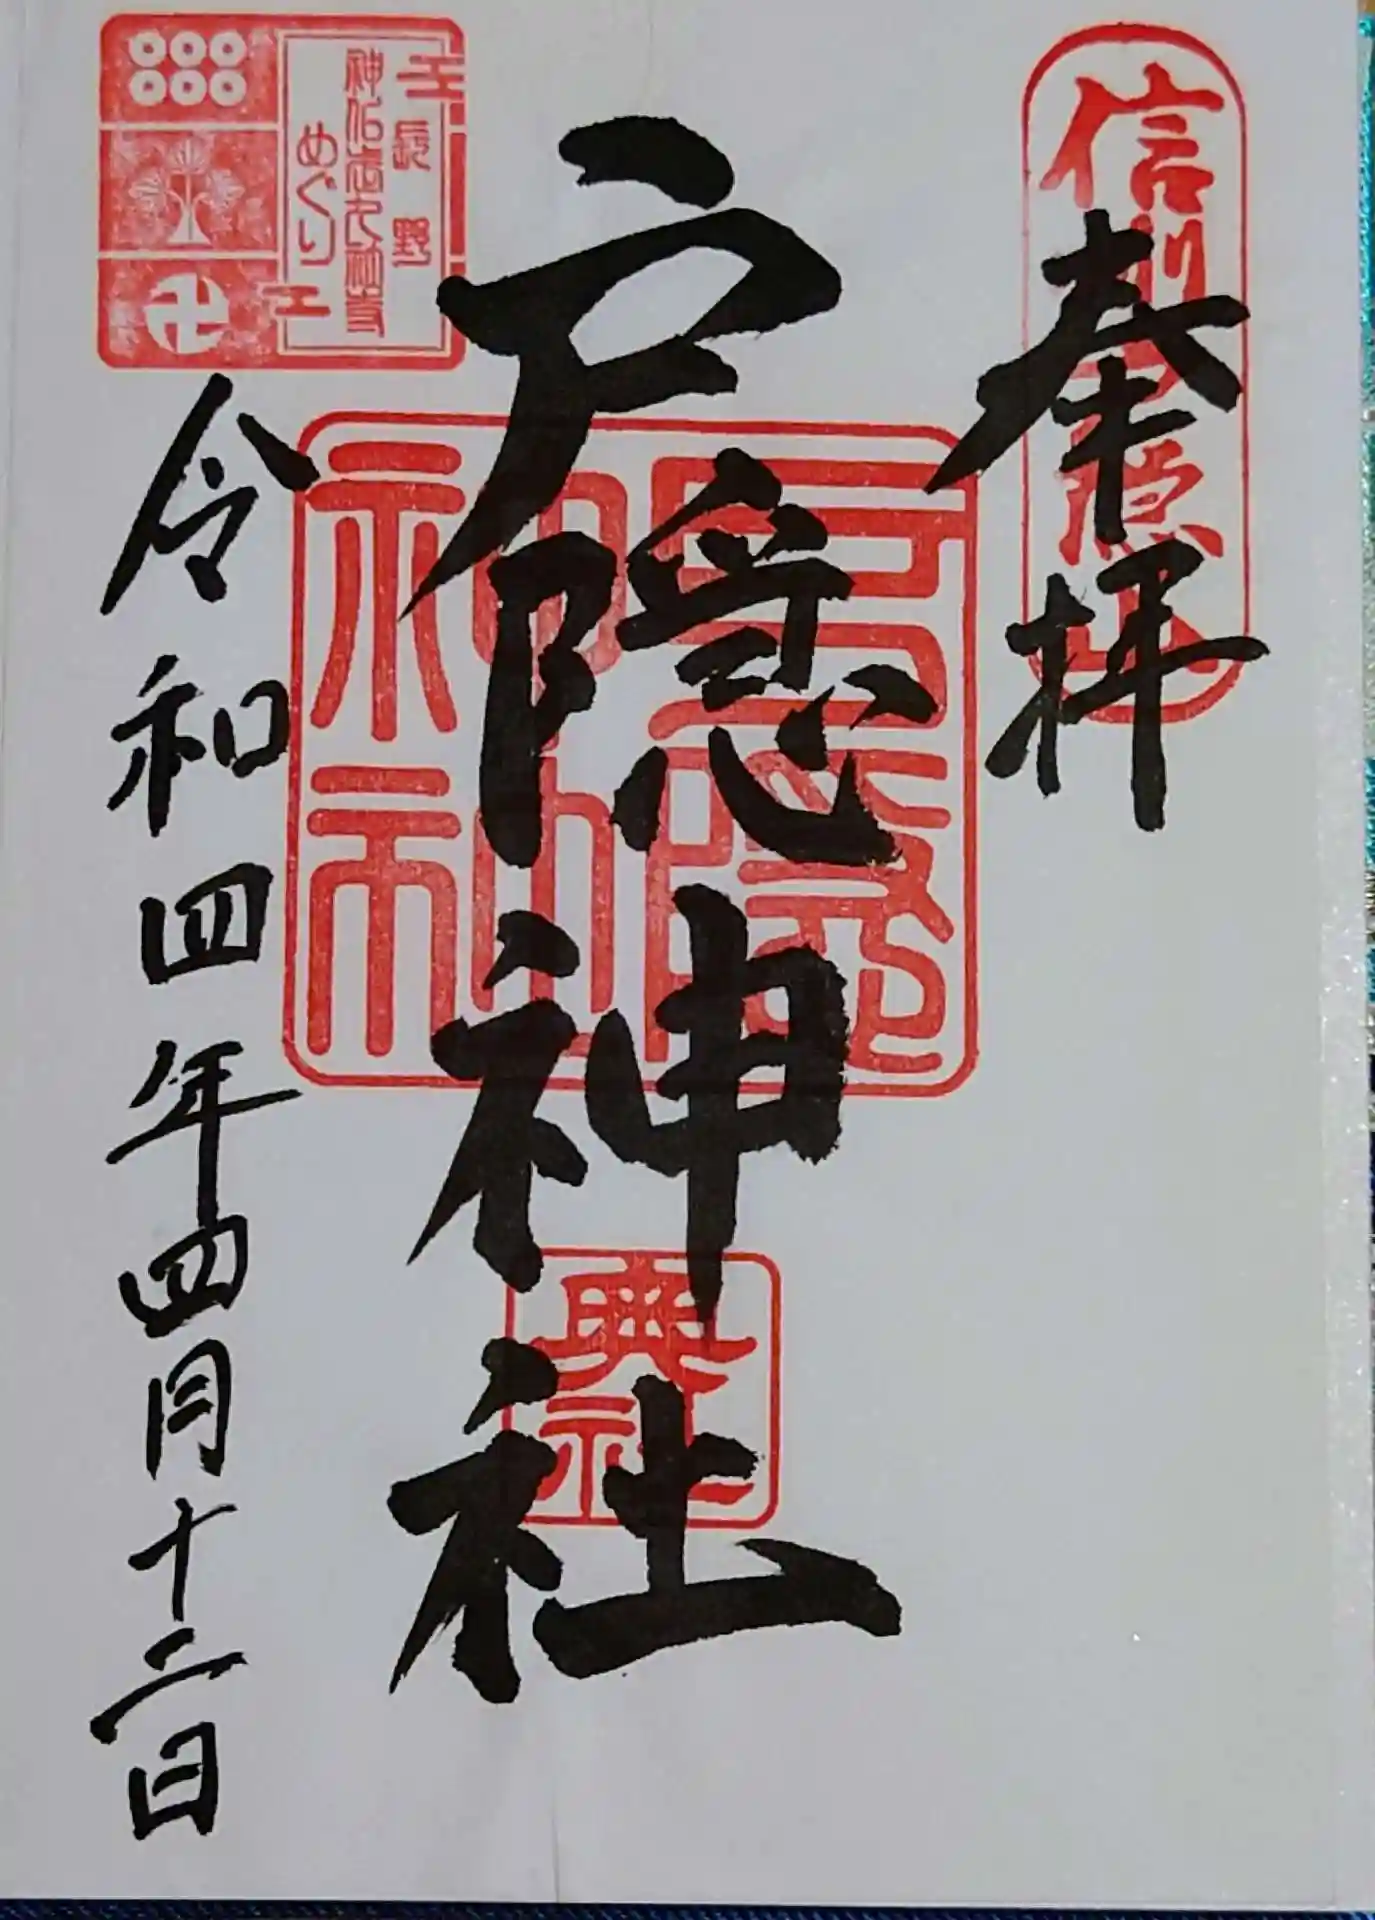 奉拝
信州戸隠山
戸隠神社
戸隠
神社
奥社
長野
めぐり
令和四年四月十二日